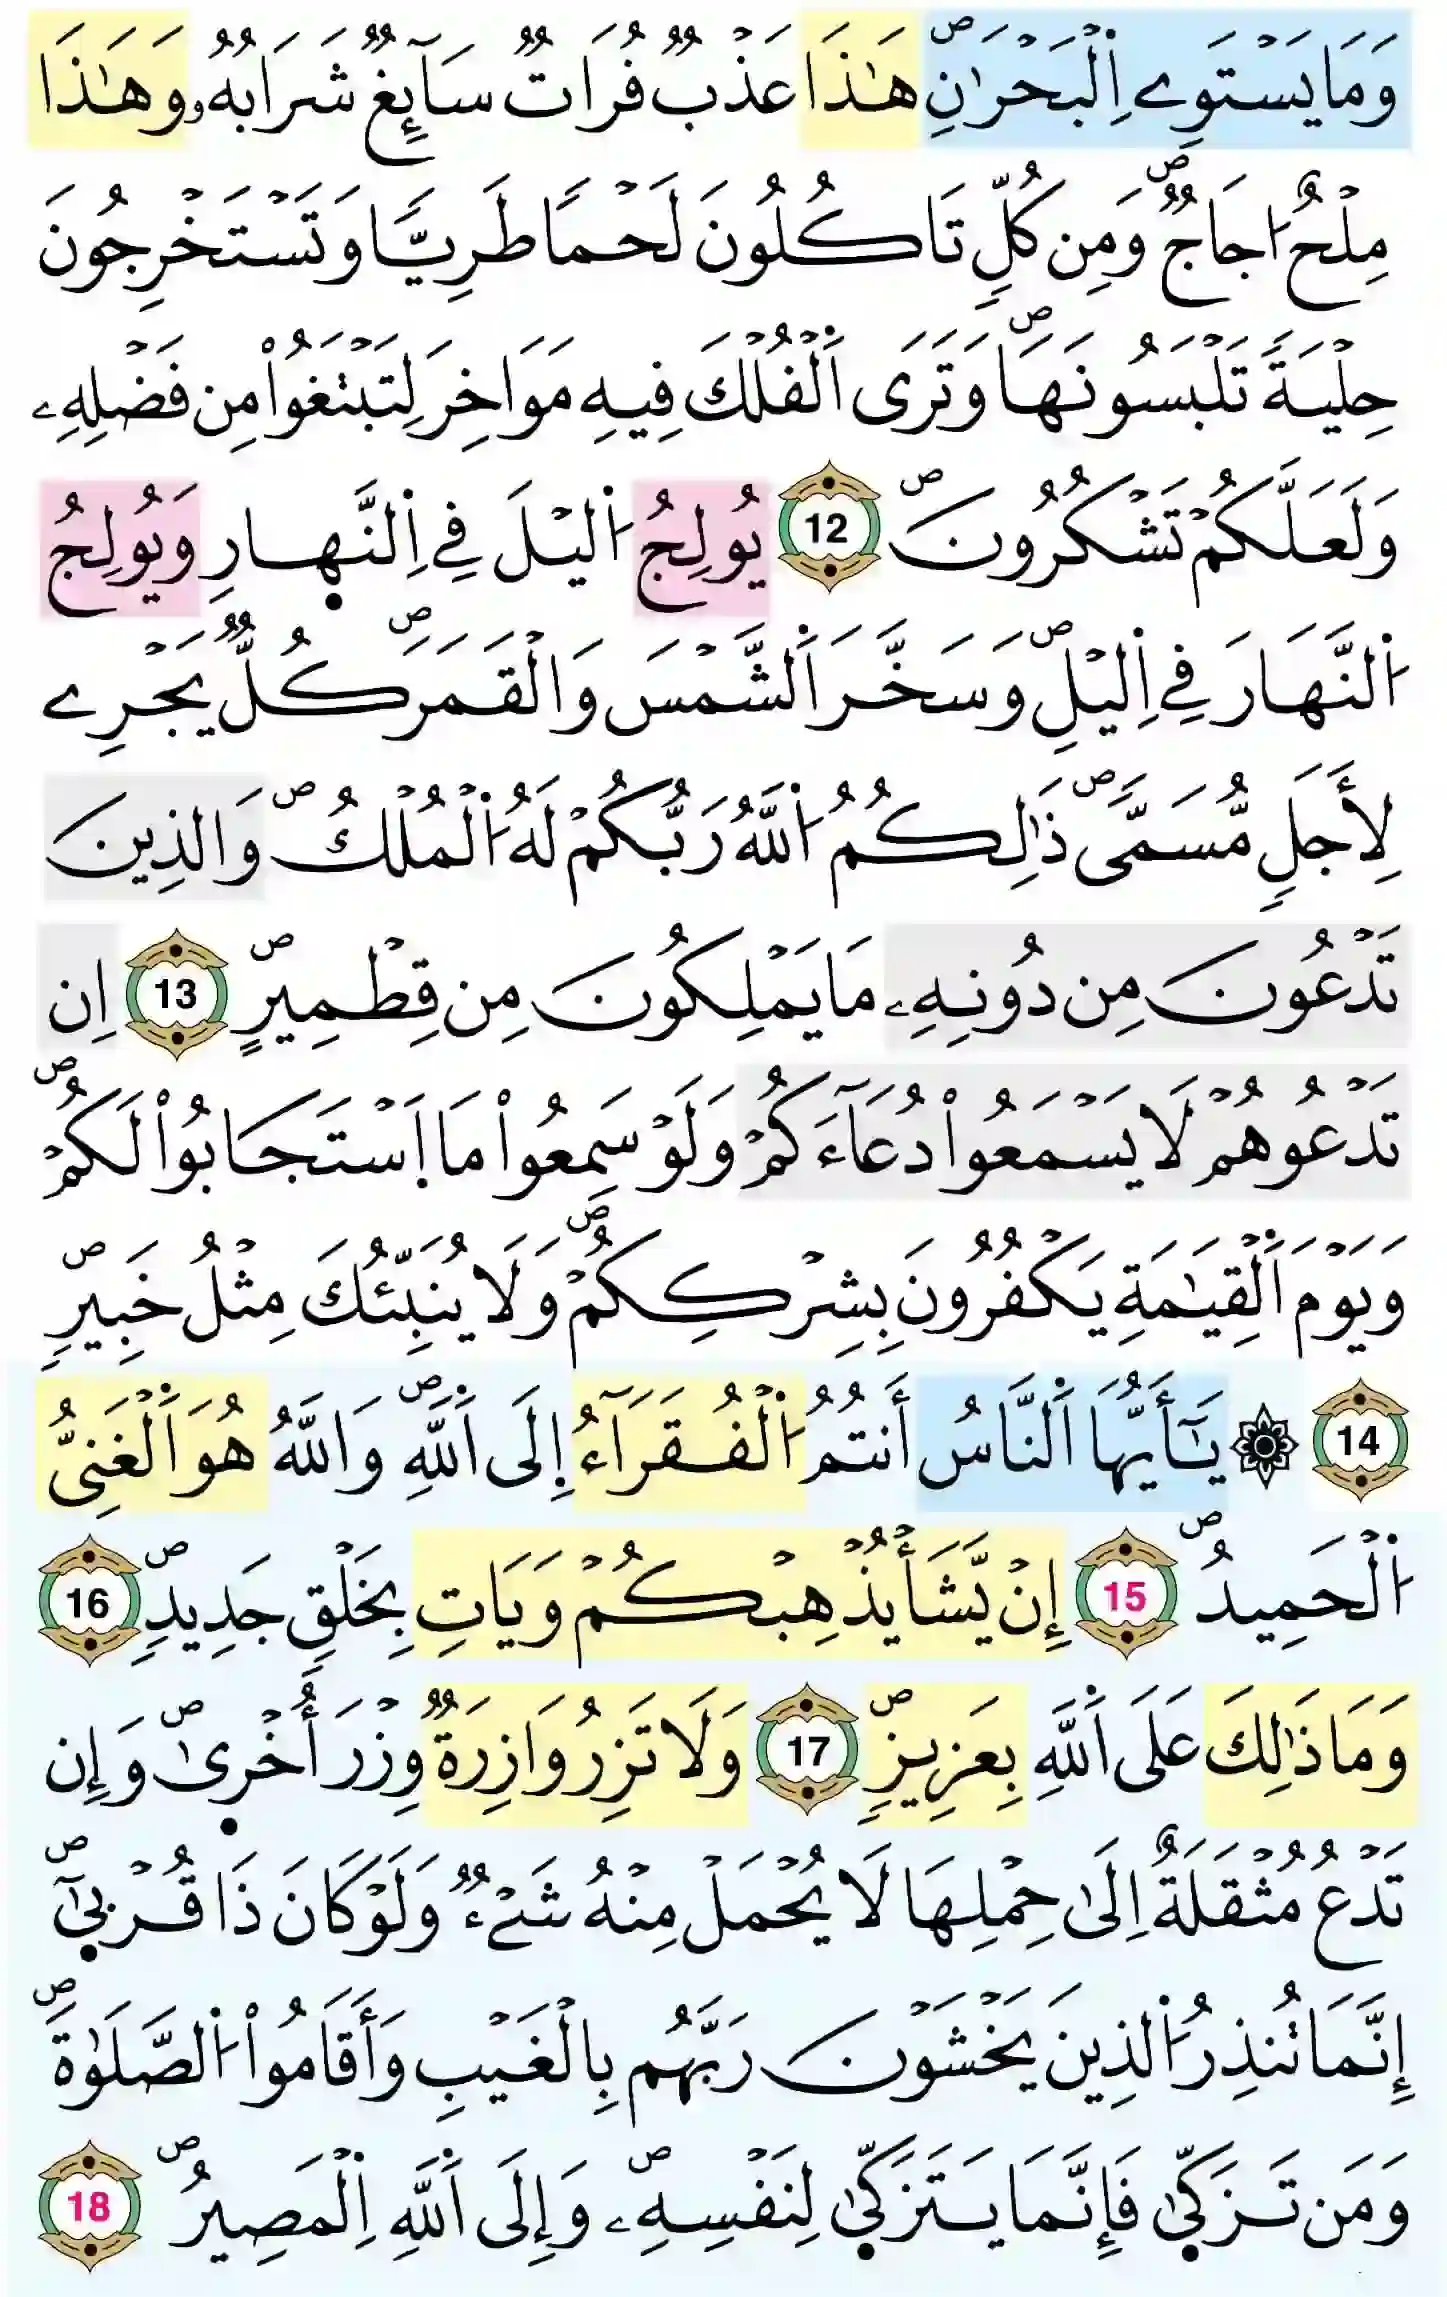 وَمَا يَسْتَوِے اِ۬لْبَحْرَٰنِۖ هَٰذَا عَذْبٞ فُرَاتٞ سَآئِغٞ شَرَابُهُۥ وَهَٰذَا
مِلْحٌ ا۟جَاجٞۖ وَمِن كُلّٖ تَاكُلُونَ لَحْماٗ طَرِيّاٗ وَتَسْتَخْرِجُونَ
حِلْيَةٗ تَلْبَسُونَهَاۖ وَتَرَى اَ۬لْفُلْكَ فِيهِ مَوَاخِرَ لِتَبْتَغُواْ مِن فَضْلِهِۦ
وَلَعَلَّكُمْ تَشْكُرُونَۖ 12 يُولِجُ اُ۬ليْلَ فِے اِ۬لنَّهَارِ وَيُولِجُ
اُ۬لنَّهَارَ فِے اِ۬ليْلِۖ وَسَخَّرَ اَ۬لشَّمْسَ وَالْقَمَرَۖ كُلّٞ يَجْرِے
لِأَجَلٖ مُّسَمّيٗۖ ذَٰلِكُمُ اُ۬للَّهُ رَبُّكُمْ لَهُ اُ۬لْمُلْكُۖ وَالذِينَ
تَدْعُونَ مِن دُونِهِۦ مَا يَمْلِكُونَ مِن قِطْمِيرٍۖ 13 اِن
تَدْعُوهُمْ لَا يَسْمَعُواْ دُعَآءَكُمْ وَلَوْ سَمِعُواْ مَا اَ۪سْتَجَابُواْ لَكُمْۖ
وَيَوْمَ اَ۬لْقِيَٰمَةِ يَكْفُرُونَ بِشِرْكِكُمْۖ وَلَا يُنَبِّئُكَ مِثْلُ خَبِيرٖۖ
14 ۞ يَٰٓأَيُّهَا اَ۬لنَّاسُ أَنتُمُ اُ۬لْفُقَرَآءُ اِ۪لَى اَ۬للَّهِۖ وَاللَّهُ هُوَ اَ۬لْغَنِيُّ
اُ۬لْحَمِيدُۖ 15 إِنْ يَّشَأْ يُذْهِبْكُمْ وَيَاتِ بِخَلْقٖ جَدِيدٖۖ 16
وَمَا ذَٰلِكَ عَلَى اَ۬للَّهِ بِعَزِيزٖۖ 17 وَلَا تَزِرُ وَازِرَةٞ وِزْرَ أُخْر۪ىٰۖ وَإِن
تَدْعُ مُثْقَلَةٌ اِلَىٰ حِمْلِهَا لَا يُحْمَلْ مِنْهُ شَےْءٞ وَلَوْ كَانَ ذَا قُرْب۪ىٰٓۖ
إِنَّمَا تُنذِرُ اُ۬لذِينَ يَخْشَوْنَ رَبَّهُم بِالْغَيْبِ وَأَقَامُواْ اُ۬لصَّلَوٰةَۖ
وَمَن تَزَكّ۪ىٰ فَإِنَّمَا يَتَزَكّ۪ىٰ لِنَفْسِهِۦۖ وَإِلَى اَ۬للَّهِ اِ۬لْمَصِيرُۖ 18